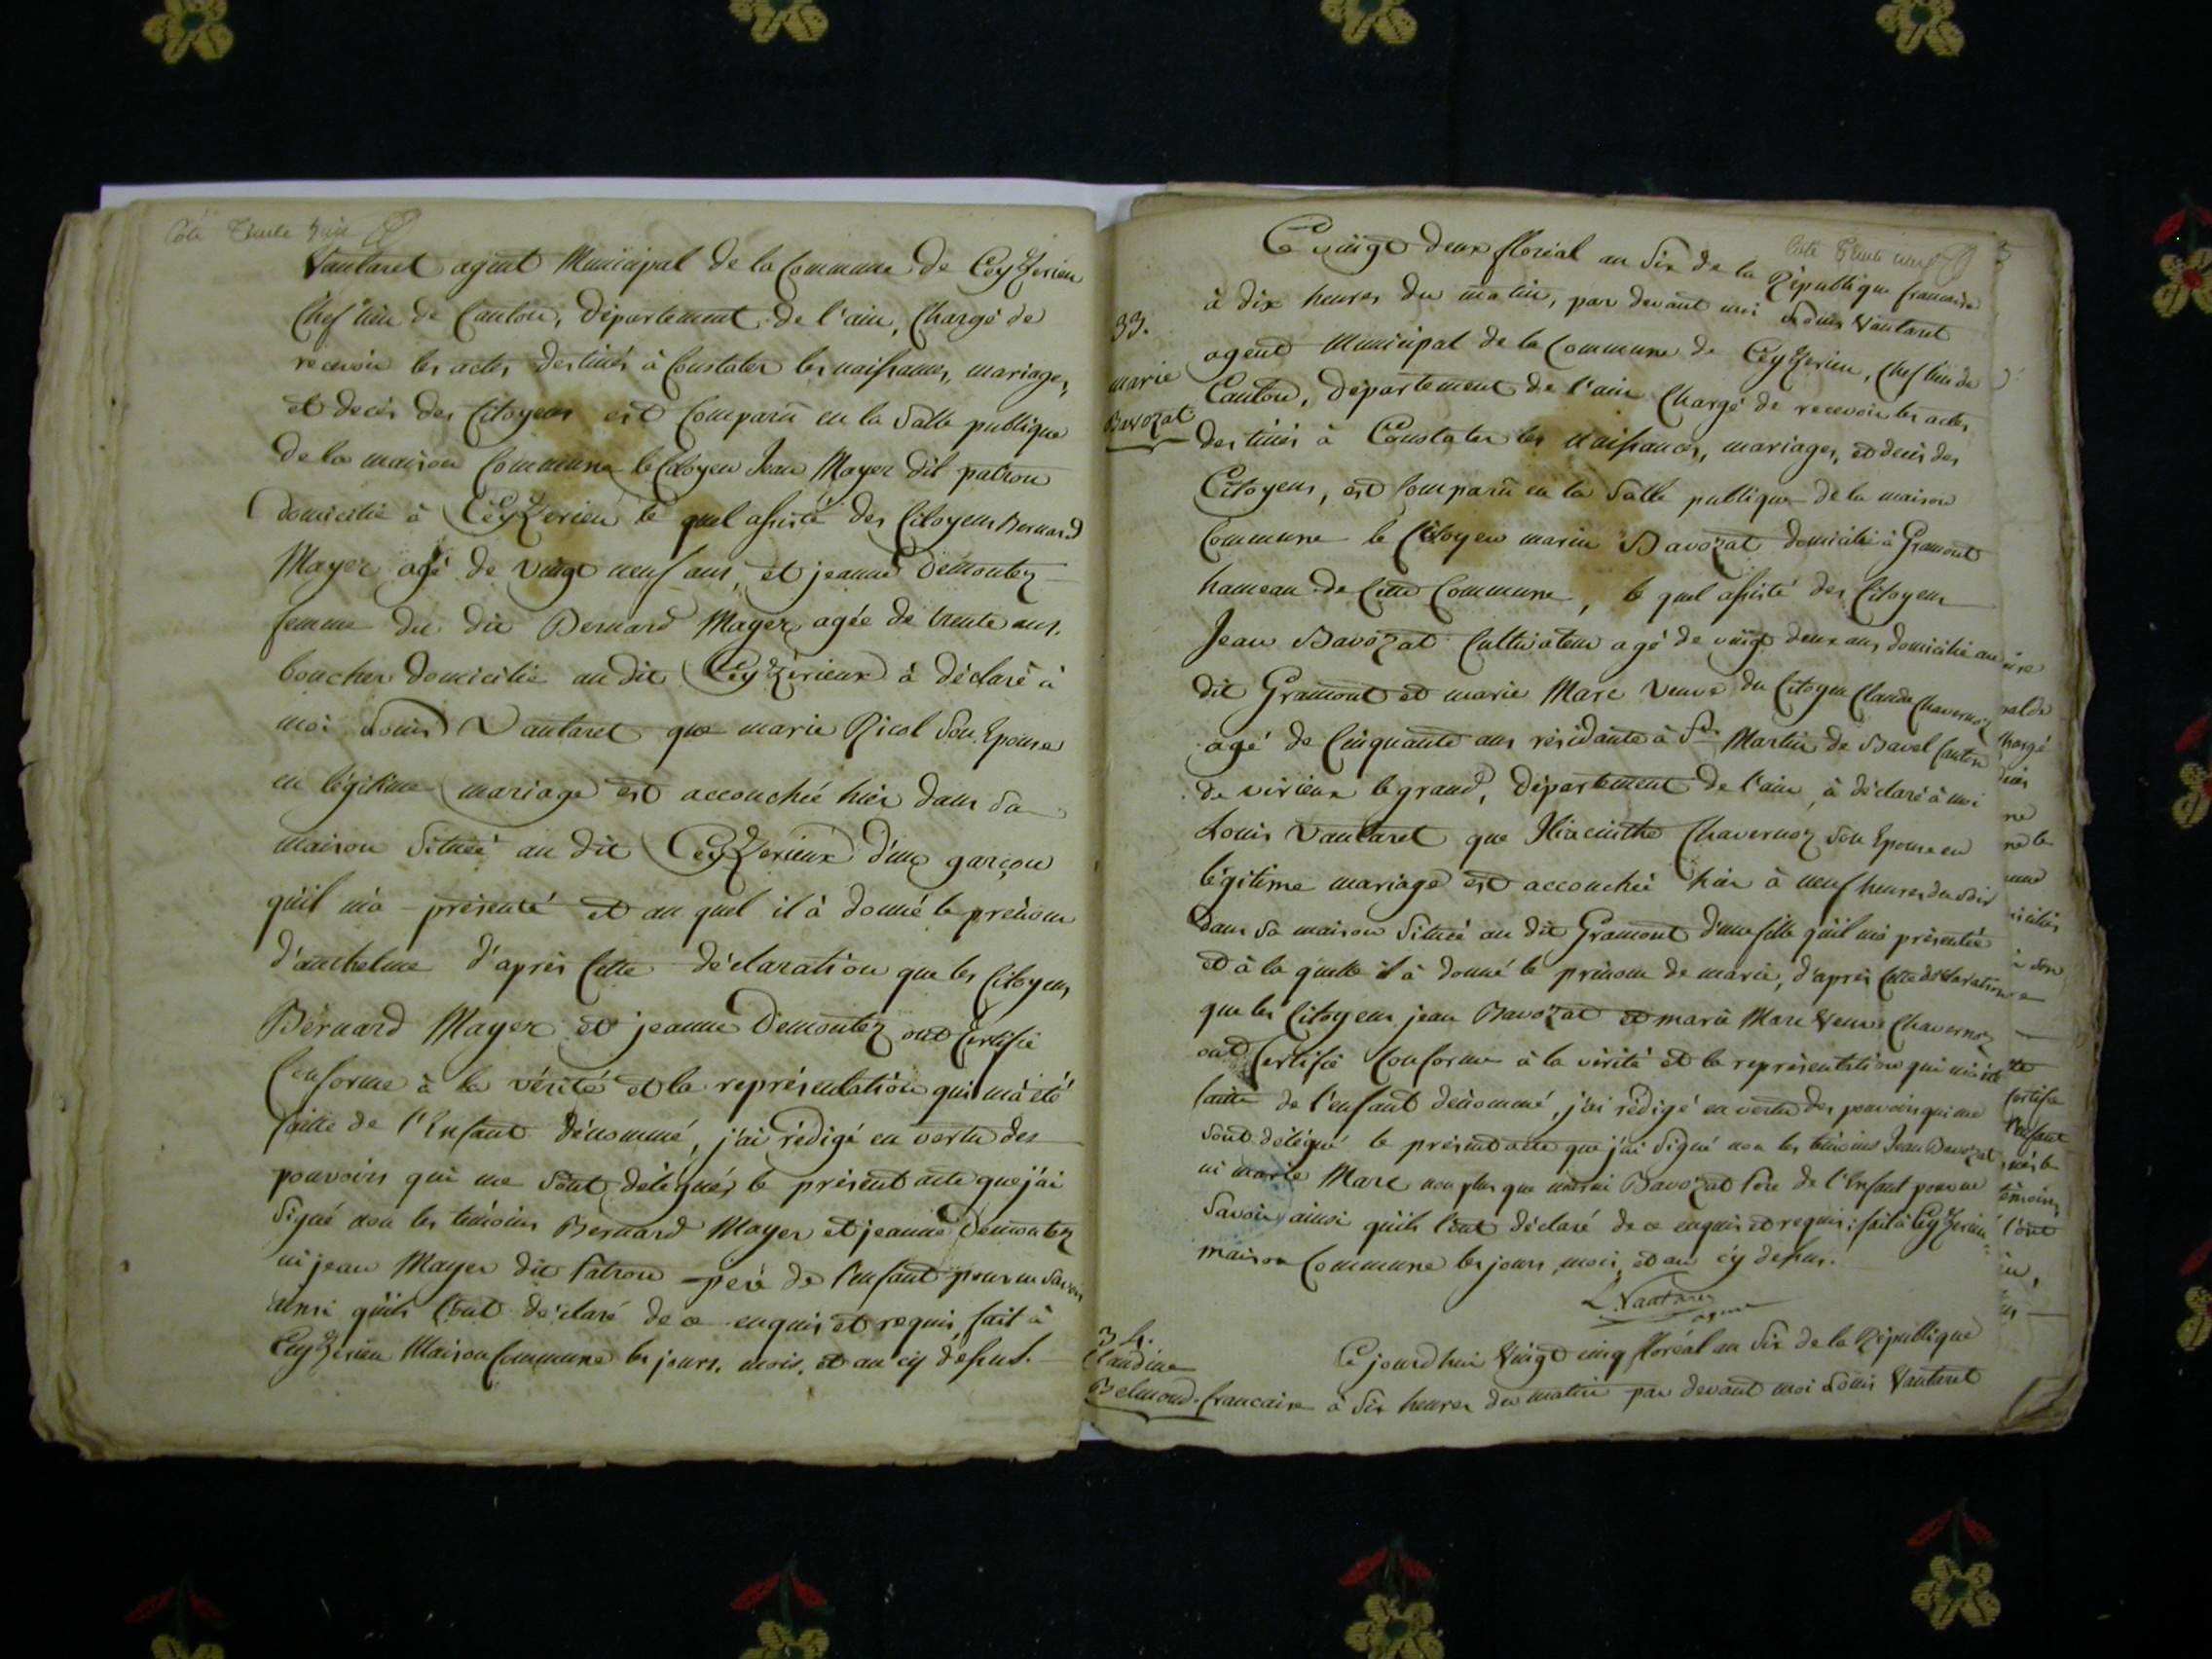 Coté Trente huit
Vautaret agent Municipal de la Commune de Ceyzerieu
Chef lieu de Canton, Département de l'ain, Chargé de
recevoir les actes destinés à Constater les naissances, mariages,
et decès des Citoyens est Comparû en la Salle publique
de la maison Commune le Citoyen Jean Mayer dit patron
domicilié à Ceyzerieu le quel assisté des Citoyens Bernard
Mayer agé de vingt neuf ans, et jeanne Demontez
femme du dit Bernard Mayer agée de trente ans,
boucher domicilié au dit Ceyzérieux à déclaré à
moi Louis Vautaret que marie Ricol Son Epouse
en légitime mariage est accouchée hier dans sa
maison Située au dit Ceyzerieux d'un garçon
qu'il m'à présenté et au quel il à donné le prénom
d'anthelme d'après Cette déclaration que les Citoyens
Bernard Mayer et jeanne Demontez ont Certifié
Conforme à la vérité et la représentation qui m'à été
faitte de l'Enfant dénommé, j'ai rédigé en vertu des
pouvoirs qui me Sont délégués le présent acte que j'ai
Signé non les témoins Bernard Mayer et jeanne Demontez
ni jean Mayer dit Patron père de l'enfant pour ne Savoir
ainsi qu'ils l'ont déclaré de ce enquis et requis, fait à
Ceyzerieu Maison Commune les jours, mois, et an cy dessus.
Coté Trente neuf
Ce vingt deux floréal an Six de la République francaise
à dix heures du matin, par devant moi Louis Vautaret
33.
agent Municipal de la Commune de Ceyzerieu, Chef lieu de
marie
Canton, Département de l'ain Chargé de recevoir les actes
Bavozat
destinés à Constater les naissances, mariages, et decès des
Citoyens, est Comparû en la Salle publique de la maison
Commune le Citoyen marin Bavozat domicilié à Gramont
hameau de Cette Commune, le quel assisté des Citoyens
Jean Bavozat Cultivateur agé de vingt deux ans domicilié au
dit Gramont et marie Marc veuve du Citoyen Claude Chavernoz
agé de Cinquante ans résidante à St. Martin de Bavel Canton
de virieux le grand, Département de l'ain, à déclaré à moi
Louis Vautaret que Hiacinthe Chavernoz Son Epouse en
légitime mariage est accouchée hier à neuf heures du Soir
dans Sa maison Située au dit Gramont d'une fille qu'il m'à présentée
et à la quelle il à donné le prénom de marie, d'après Cette déclaration
que les Citoyens jean Bavozat et marie Marc Veuve Chavernoz
ont Certifié Conforme à la vérité et la représentation qui m'à été
faitte de l'enfant dénommé, j'ai rédigé en vertu des pouvoirs qui me
Sont délégué le présent acte que j'ai Signé non les témoins Jean Bavozat
ni marie Marc non plus que marin Bavozat Père de l'Enfant pour ne
Savoir ainsi qu'ils l'ont déclaré de ce enquis et requis; fait à Ceyzerieu
maison Commune les jours, mois, et an cy dessus.
L. Vautaret
agent
34.
Claudine
Ce jourd'hui Vingt cinq floréal an Six de la République
Belmond.
francaise à Six heures du matin par devant moi Louis Vautaret